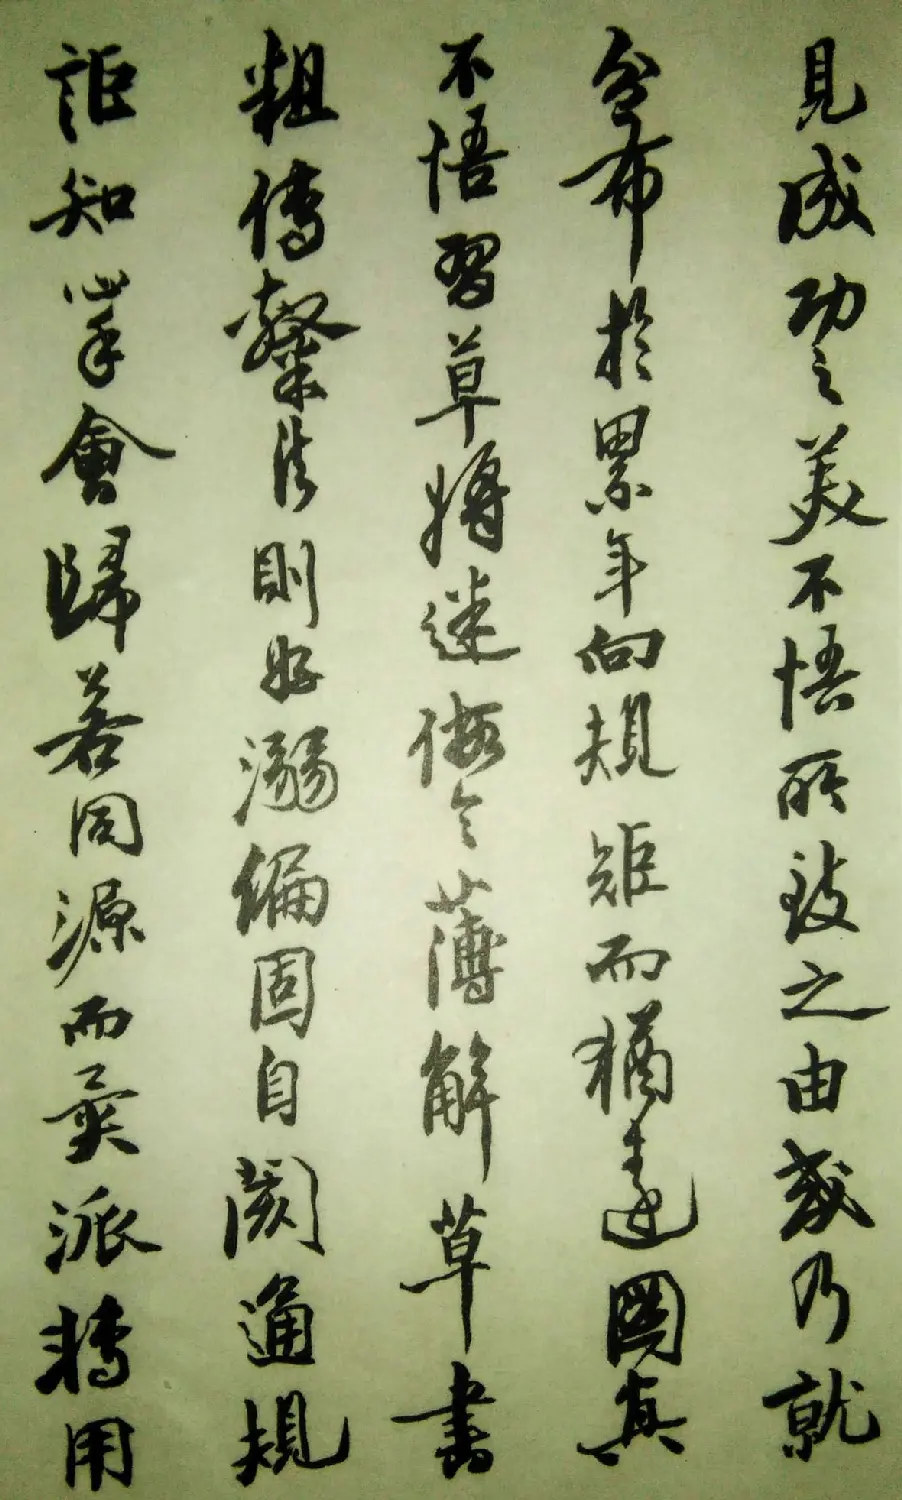 見成功之美不悟所致之由或乃就
分布於累年向規矩而猶遠圖真
不悟習草將迷假令薄解草書
粗傳隸法則好溺編固自閡通規
詎知心手會歸若同源而異派轉用